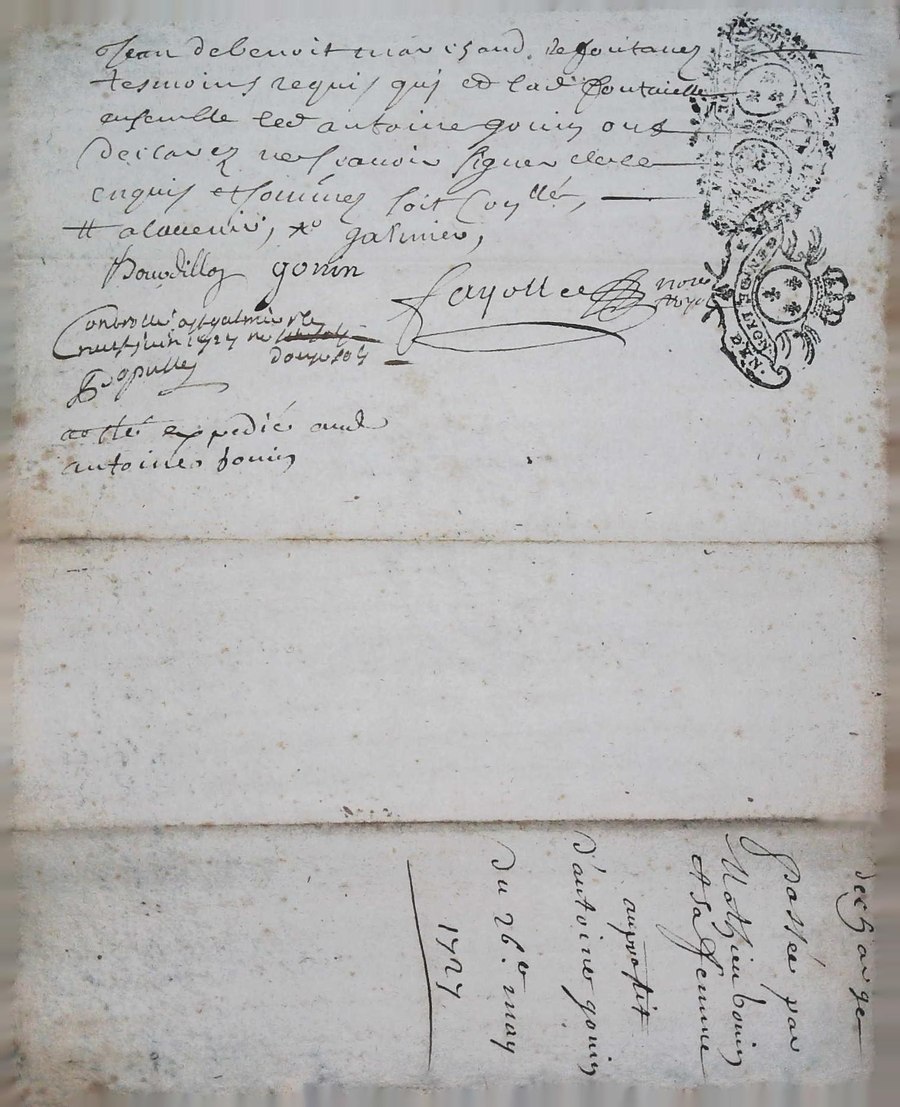 Jean debenoit marchand de fontanes
tesmoins requis qui et lad fontaielle
ensemble led antoine gonin ont
declarez ne scavoir signer de ce
enquis et sommez soit
a lavenir, galmier,
Bourdillon gonin
fayolle nore royal
Controllé a st galmier le
neuf juin 1727
douze sols
expedié aud
antoine bonin
GENERALITE
DE LYON
decharge
passée par
Mathieu bonin
et sa femme
au profit
d'antoine gonin
Du 26e may
1727